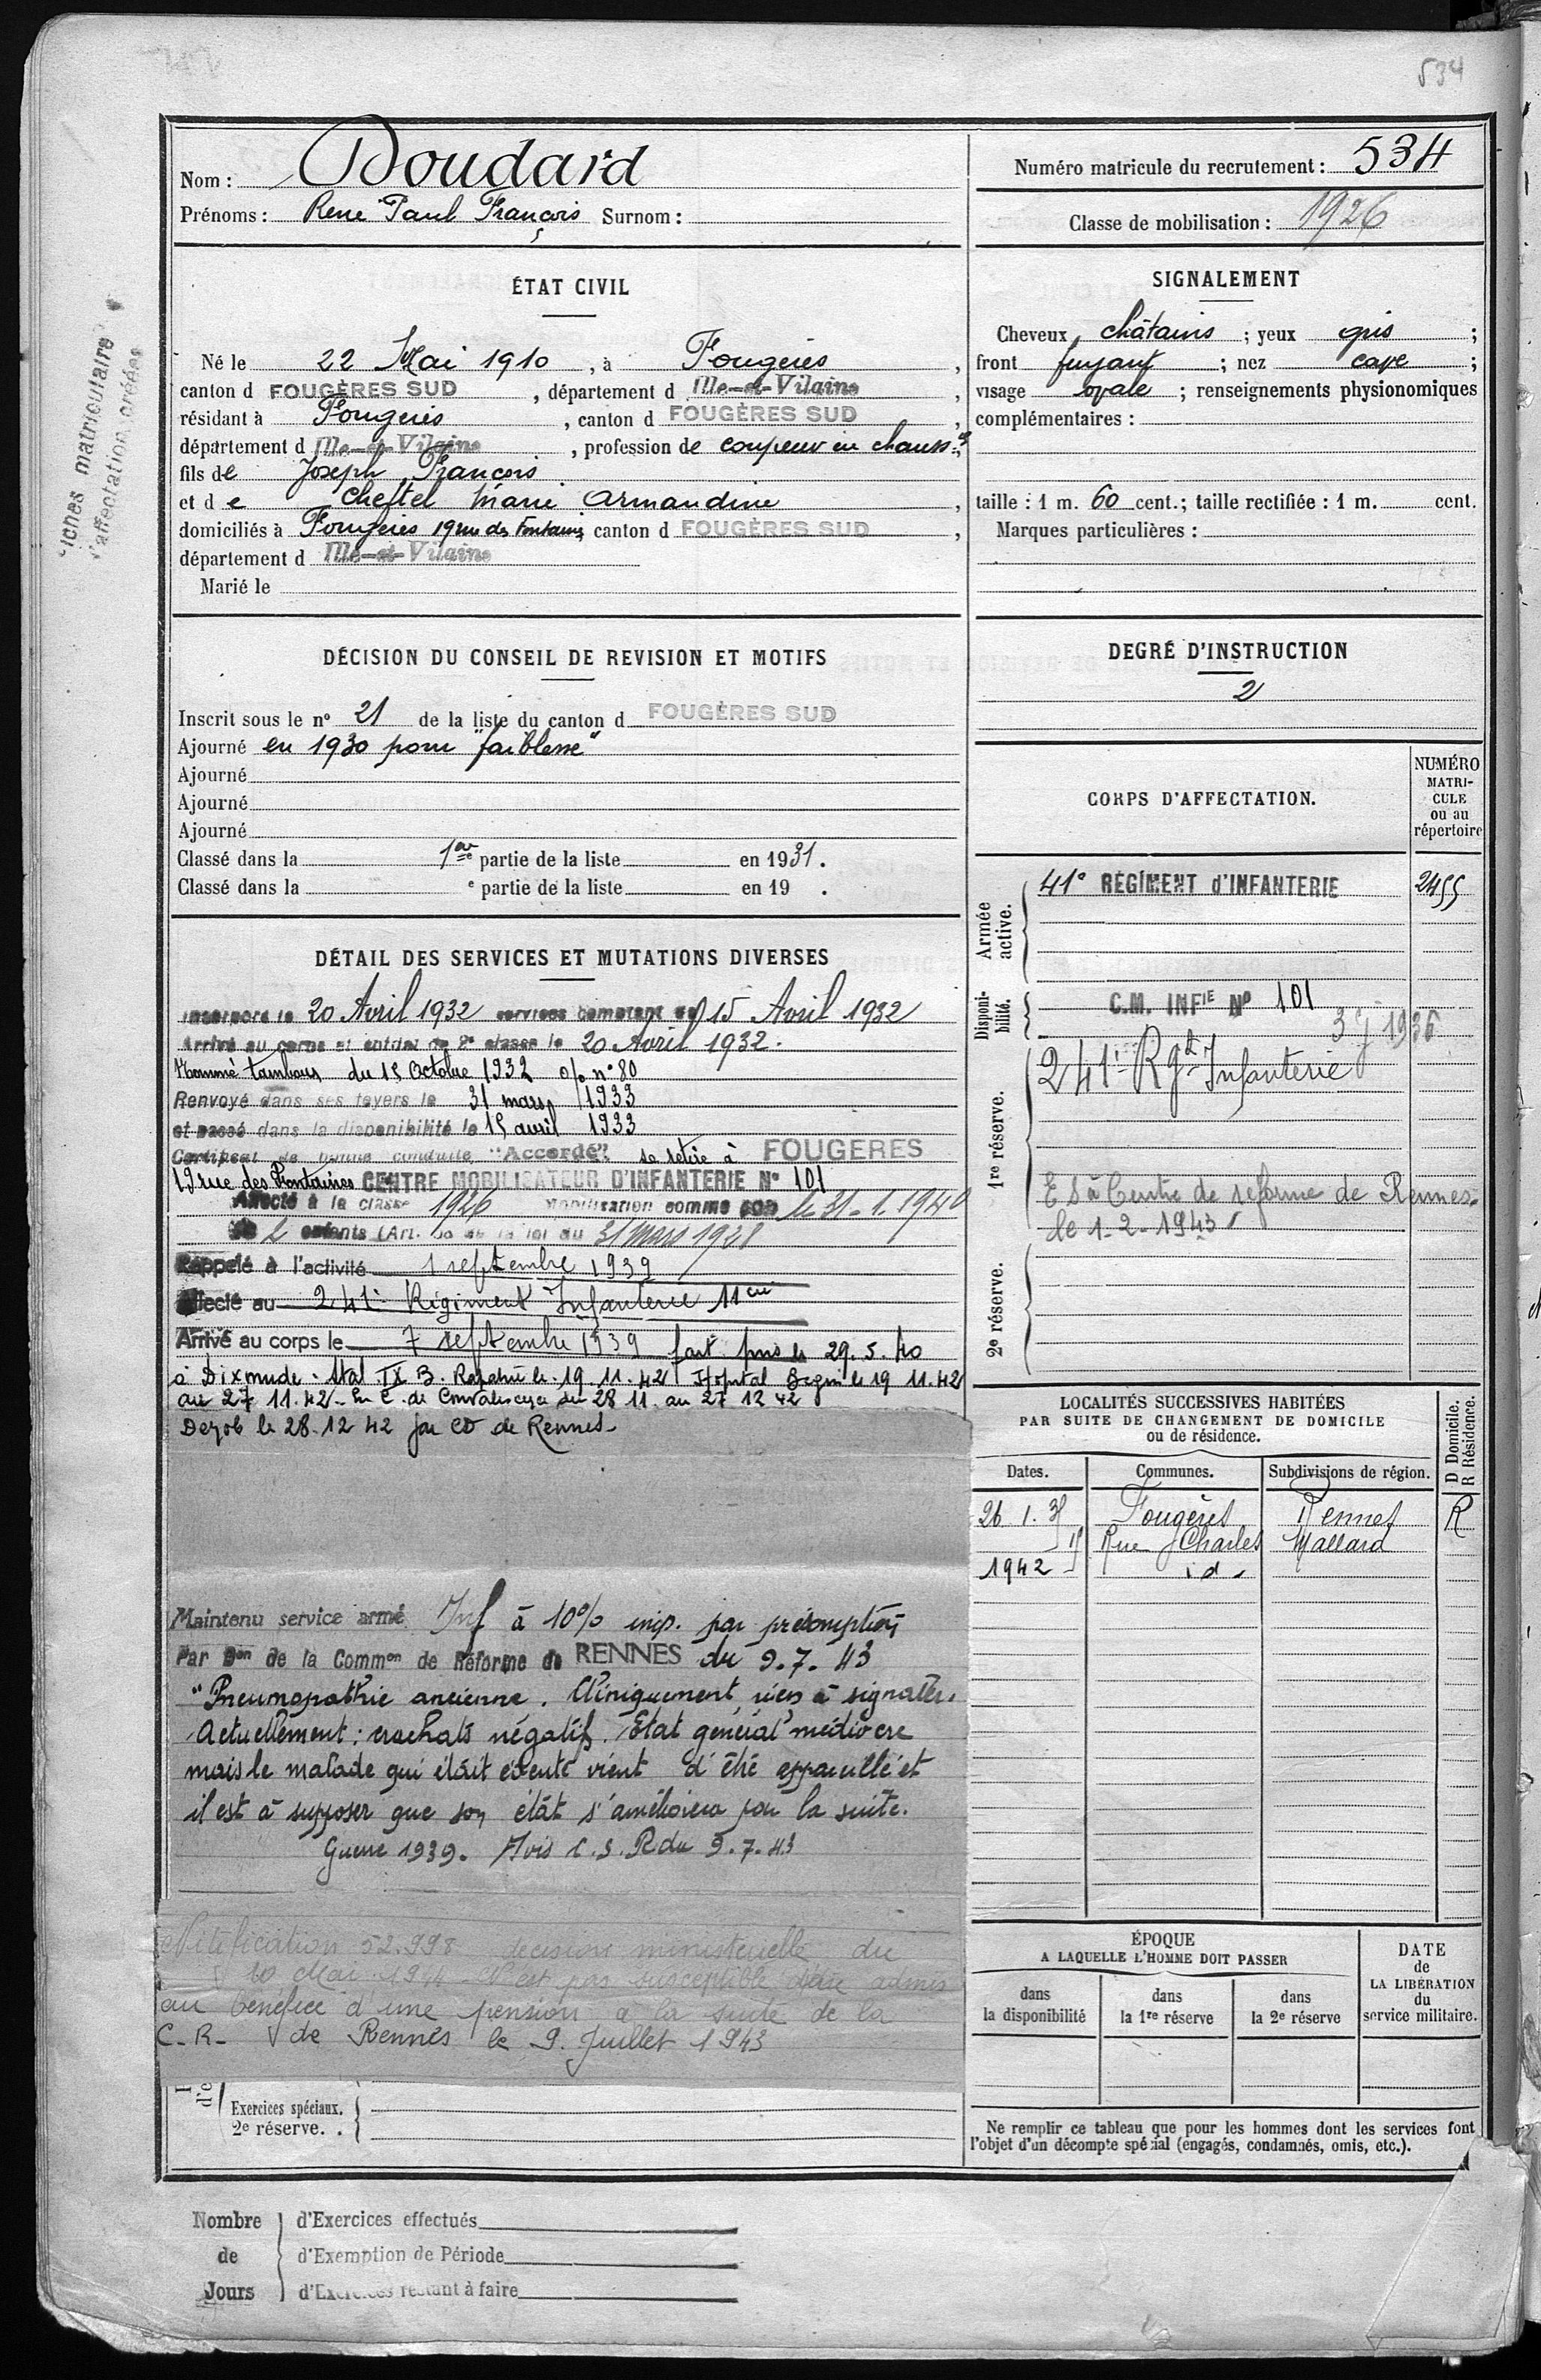 534
Nom : Doudard
Prénoms : René Paul François Surnom :
Numéro matricule du recrutement : 534
Classe de mobilisation : 1926
Fiches matriculaire
d'affectation créées
ÉTAT CIVIL
Né le 22 Mai 1910, à Fougères,
canton d FOUGÈRES SUD, département d Ille-et-Vilaine,
résidant à Fougères, canton d FOUGÈRES SUD,
département d Ille-et-Vilaine, profession de coupeur en chauss.res
fils de Joseph François
et de Cheftel Marie Armandine,
domiciliés à Fougères 19 rue des Fontaines canton d FOUGÈRES SUD,
département d Ille-et-Vilaine
Marié le
SIGNALEMENT
Cheveux châtains ; yeux gris ;
front fuyant ; nez cave ;
visage ovale ; renseignements physionomiques
complémentaires :
taille : 1 m. 60 cent.; taille rectifiée : 1 m. cent.
Marques particulières :
DÉCISION DU CONSEIL DE REVISION ET MOTIFS
Inscrit sous le nº 21 de la liste du canton d FOUGÈRES SUD
Ajourné en 1930 pour "faiblesse"
Ajourné
Ajourné
Ajourné
Classé dans la 1ère partie de la liste en 1931.
Classé dans la e partie de la liste en 19 .
DEGRÉ D'INSTRUCTION
2
CORPS D'AFFECTATION.
NUMÉRO MATRI-CULE ou au répertoire
Armée active.
41e RÉGIMENT d'INFANTERIE 2455
Disponi-bilité.
C.M. INFIE Nº 101
1936
1re réserve.
241e Rgt Infanterie
E S à Centre de réforme de Rennes.
le 1-2-1943
2e réserve.
DÉTAIL DES SERVICES ET MUTATIONS DIVERSES
Incorporé le 20 Avril 1932 services comptant du 15 Avril 1932
Arrivé au corps et soldat de 2e classe le 20 Avril 1932.
Nommé tambour du 15 Octobre 1932 o/o nº 80
Renvoyé dans ses foyers le 31 mars 1933
et passé dans la disponibilité le 15 avril 1933
Certificat de bonne conduite "Accordé" se retire à FOUGERES
19 rue des Fontaines CENTRE MOBILISATEUR D'INFANTERIE Nº 101
Affecté à la classe 1926 mobilisation comme père le 31-1.1940
de 2 enfants (Art. de la loi du 31 mars 1928
Rappelé à l'activité 1 septembre 1939
Affecté au 241e Régiment Infanterie 11 cie
Arrivé au corps le 7 septembre 1939 fait pris le 29.5.40
à Dixmude. Stal. IX B. Rapatrié le 19.11.42 Hôpital Begin le 19 11.42
au 27 11.42. En C. de Convalescence du 28 11. au 27 12 42
Démob le 28.12 42 par CD de Rennes.
Maintenu service armé Inf à 10% imp. par présomption
Par Don de la Common de Réforme de RENNES du 9.7.43
"Pneumopathie ancienne. Cliniquement rien à signaler.
Actuellement : crachats négatifs. Etat général médiocre
mais le malade qui était édenté vient d'être appareillé et
il est à supposer que son état s'améliorera par la suite.
Guerre 1939. Avis C.S.R du 9.7.43
Notification 52.998 décision ministérielle du
10 Mai 1944 N'est pas susceptible d'être admis
au bénéfice d'une pension à la suite de la
C.R. de Rennes le 9. Juillet 1943
Exercices spéciaux.
2e réserve. .
LOCALITÉS SUCCESSIVES HABITÉES
PAR SUITE DE CHANGEMENT DE DOMICILE
ou de résidence.
D Domicile.
R Résidence.
Dates. Communes. Subdivisions de région.
26.1.35 Fougères Rennes R
Rue Charles Mallard
1942 id.
ÉPOQUE
A LAQUELLE L'HOMME DOIT PASSER
dans la disponibilité
dans la 1re réserve
dans la 2e réserve
DATE de LA LIBÉRATION du service militaire.
Ne remplir ce tableau que pour les hommes dont les services font
l'objet d'un décompte spécial (engagés, condamnés, omis, etc.).
Nombre de Jours
d'Exercices effectués
d'Exemption de Période
d'Exercices restant à faire